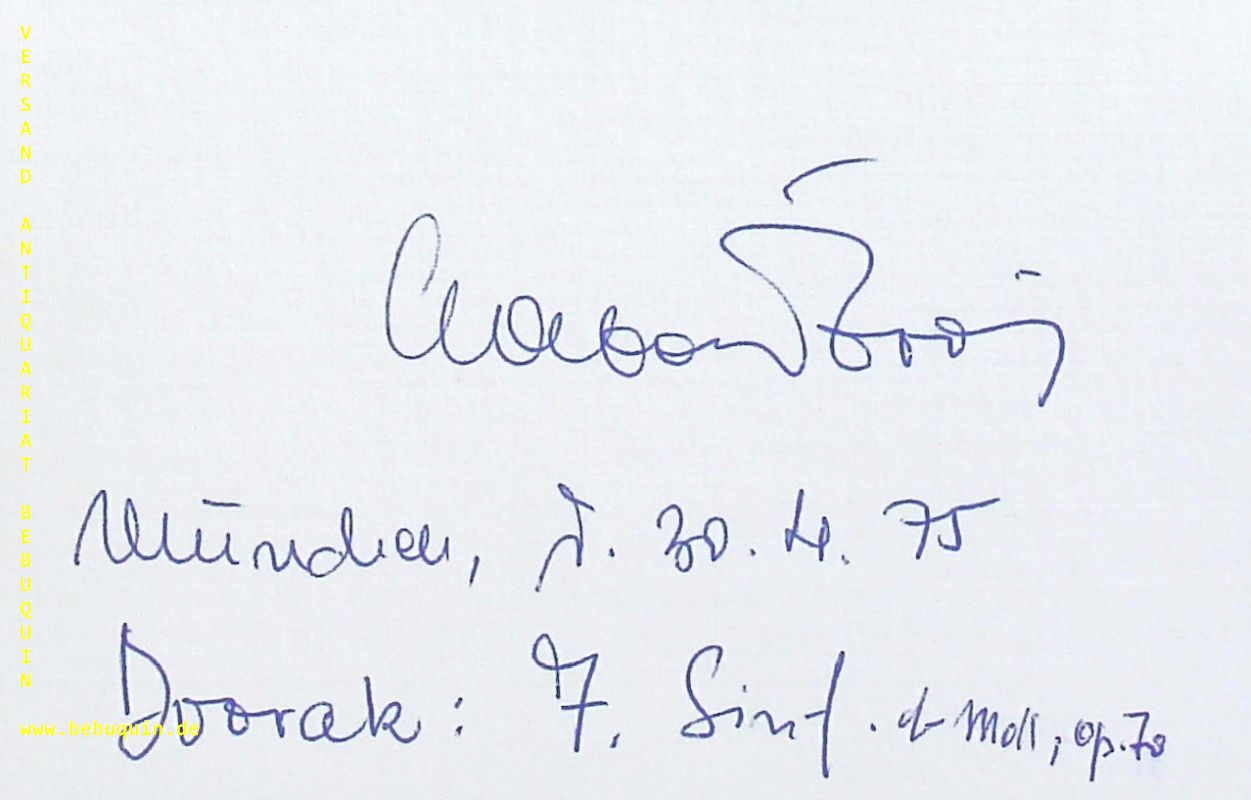 VERSAND ANTIQUARIAT BEBUQUIN
München, d. 30. 4. 75
Dvorak: 7. Sinf. d-Moll, op. 70
www.bebuquin.de